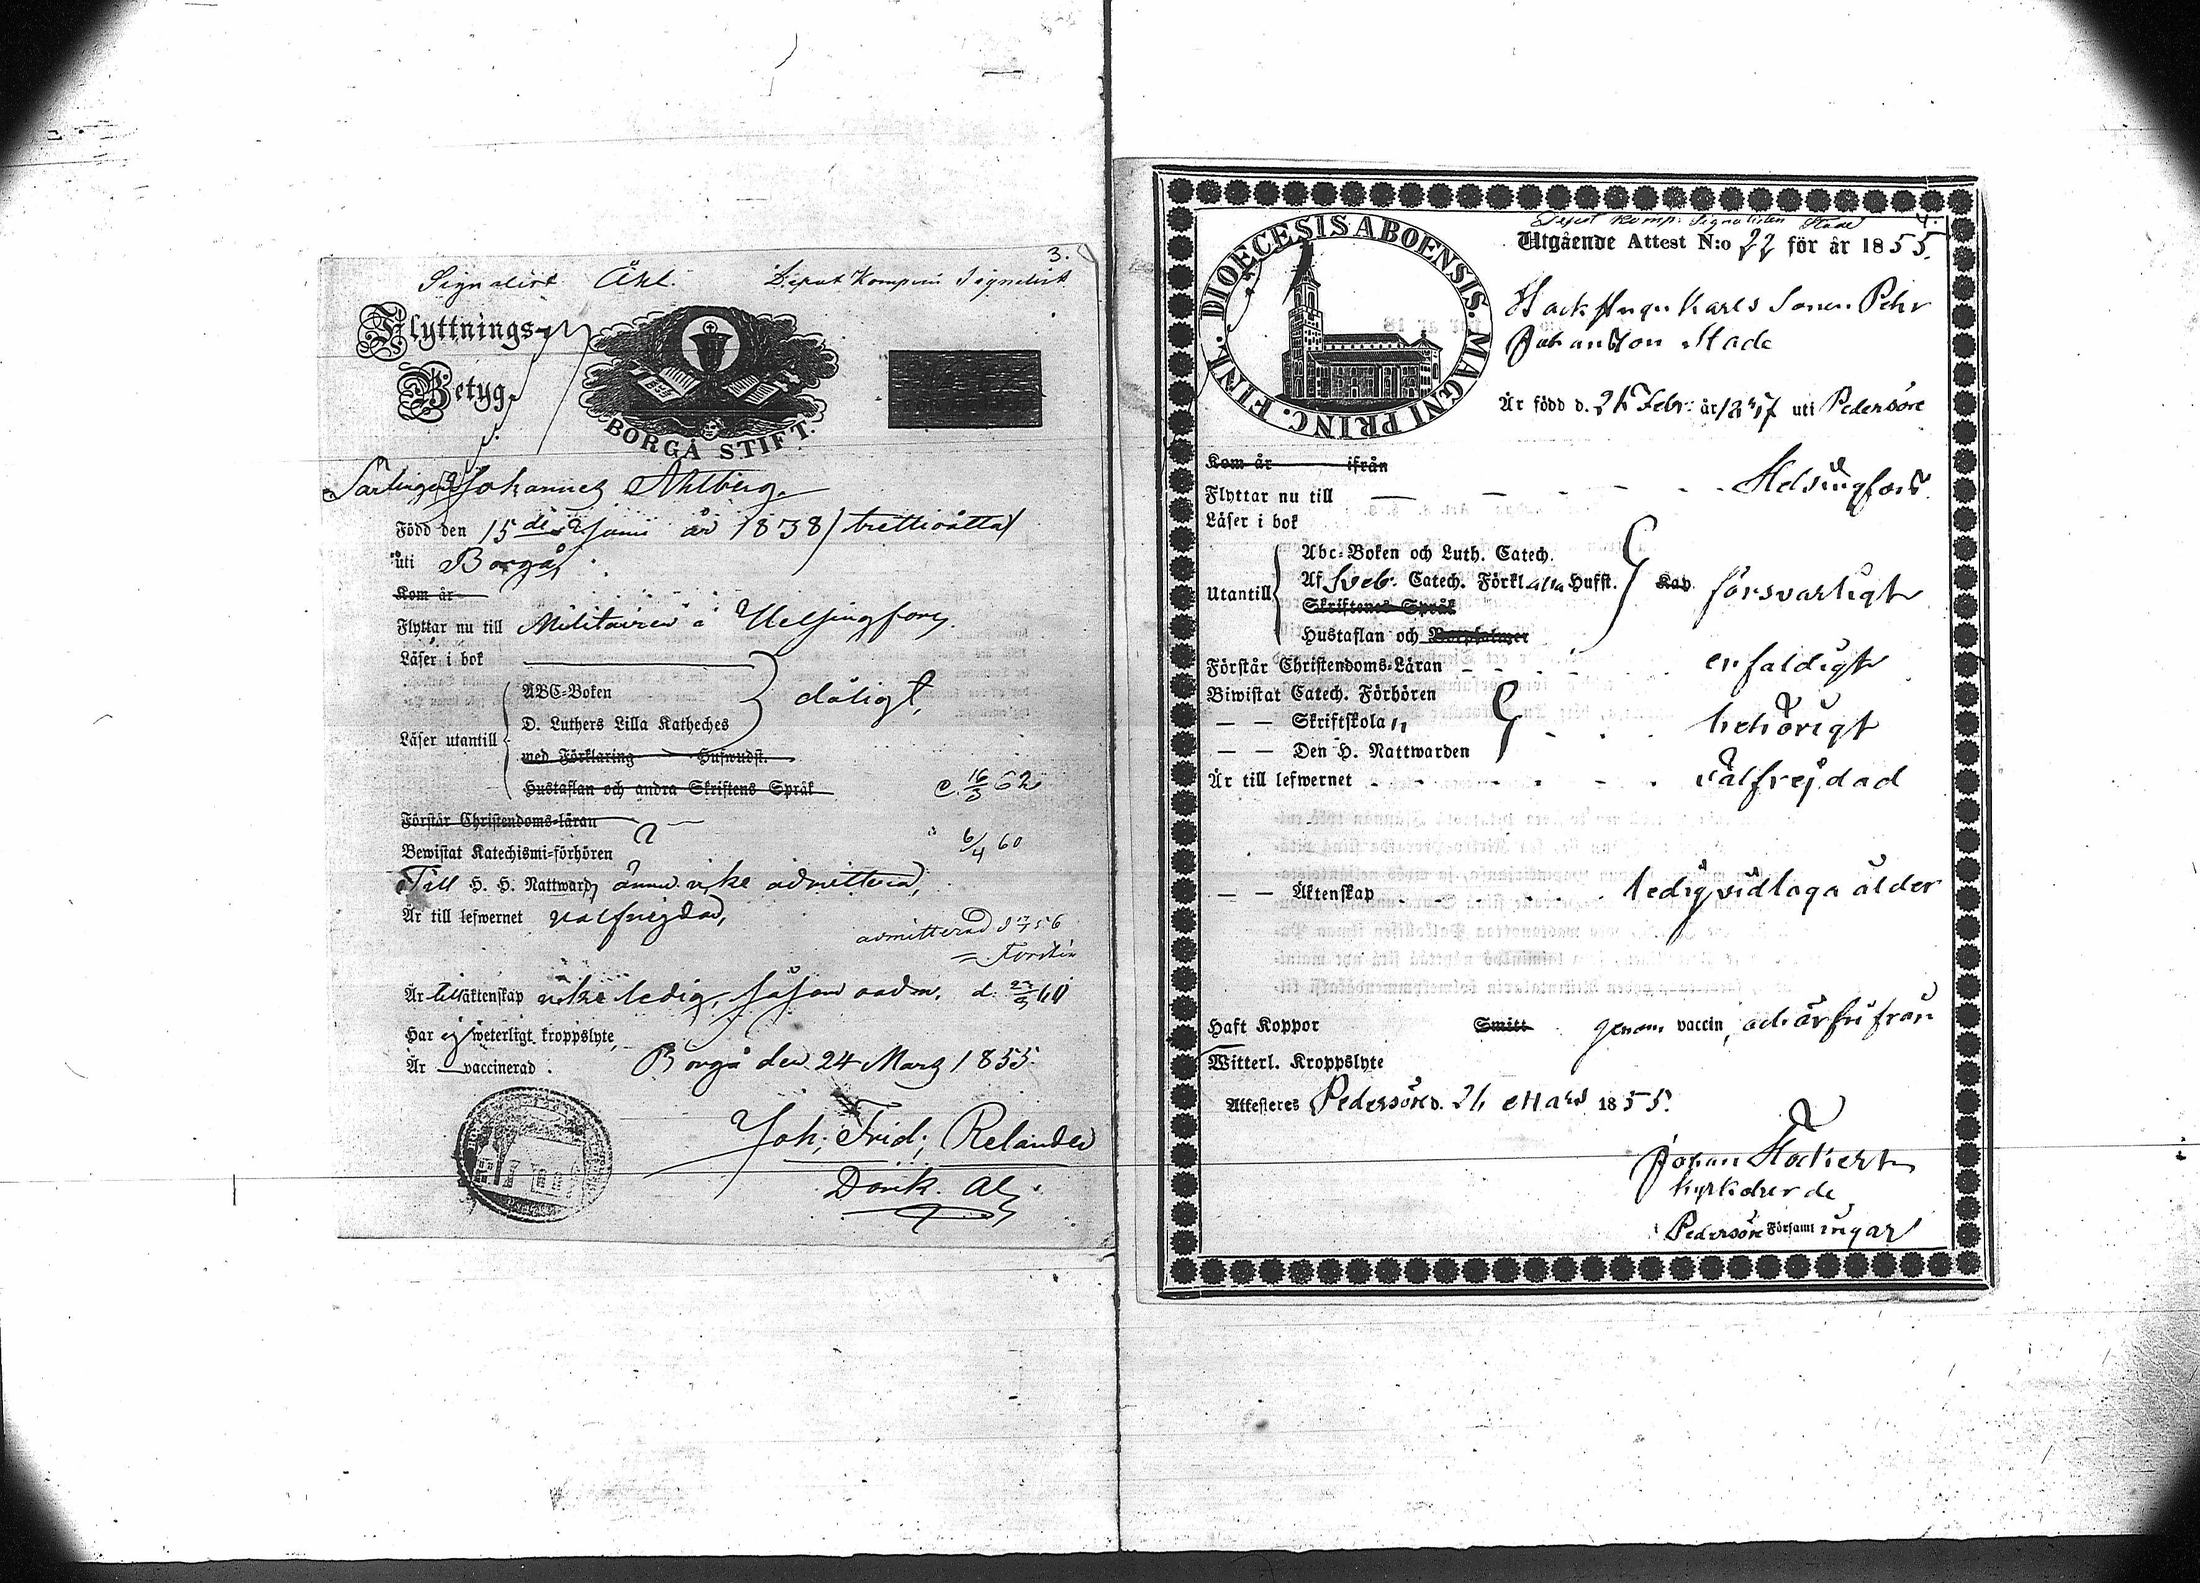 3.
Signalist Åhl. Depot Kompani Signalist
Flyttnings-
Betyg.
BORGÅ STIFT.
Johannes Ahlberg.
Född den 15de Juni år 1838 (trettioåtta)
uti Borgå,
Kom år
Flyttar nu till Militairen i Helsingfors.
Läser i bok
ABC-Boken
dåligt,
D. Luthers Lilla Katheches
Läser utantill
med Förklaring Hufwudst.
Hustaflan och andra Skriftens Språk
C. 16/3 62
Förstår Christendoms-läran
" 6/4 60
Bewistat Katechismi-förhören
Till H. H. Nattward, ännu icke admitterad,
Är till lefwernet välfrejdad,
admitterad d 56
Är till äktenskap icke ledig, såsom d. 60
Har ej weterligt kroppslyte,
Är vaccinerad. Borgå den 24 Mars 1855.
Joh; Frid; Relander
4.
Depot Komp: Signalisten Stade
Utgående Attest N:o 22 för år 1855.
DIOECESIS ABOENSIS. MAGNI PRINC. FINL.
Karls Sonen Pehr
Johansson Stade
Är född d. Febr: år uti Pedersöre
Kom år ifrån
Flyttar nu till Helsingfors.
Läser i bok
Abc-Boken och Luth. Catech.
Utantill
Af Sveb. Catech. Förkl. alla Hufst. Kap. försvarligt
Skriftenes Språk
Hustaflan och Botpsalmer
Förstår Christendoms-Läran enfaldigt
Biwistat Catech. Förhören
— — Skriftskola behörigt
— — Den H. Nattwarden
Är till lefwernet välfrejdad
— — Äktenskap ledig vid laga ålder
Haft Koppor Smitt genom vaccin, och är fri från
Witterl. Kroppslyte
Attesteres Pedersöre d. Mars 1855.
Johan
Kyrkoherde
i Pedersöre Församlingar